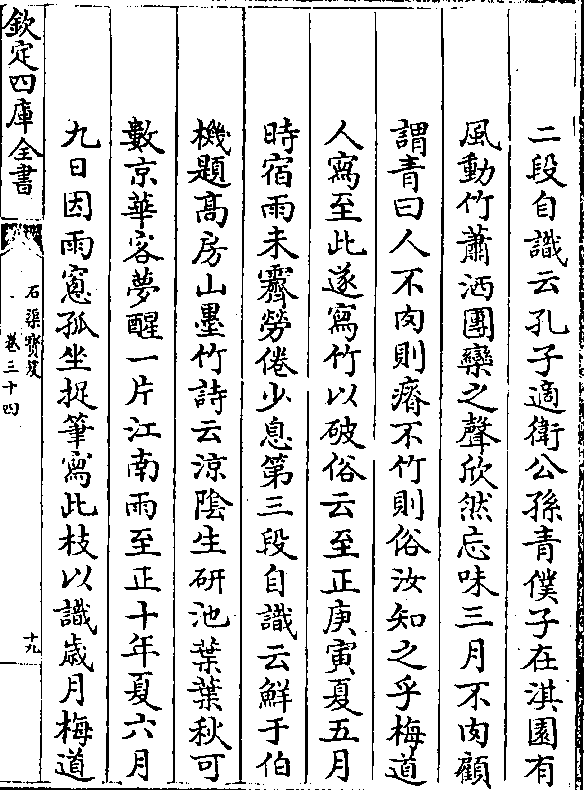 二段自識云孔子適衛公孫青僕子在淇園有
風動竹蕭洒團欒之聲欣然忘味三月不肉顧
謂青曰人不肉則瘠不竹則俗汝知之乎梅道
人寫至此遂寫竹以破俗云至正庚寅夏五月
時宿雨未霽勞倦少息第三段自識云鮮于伯
機題髙房山墨竹詩云涼陰生研池葉葉秋可
數京華客夢醒一片江南雨至正十年夏六月
九日因雨窻孤坐捉筆寫此枝以識歲月梅道
欽定四庫全書
石渠寳笈
卷三十四
十九